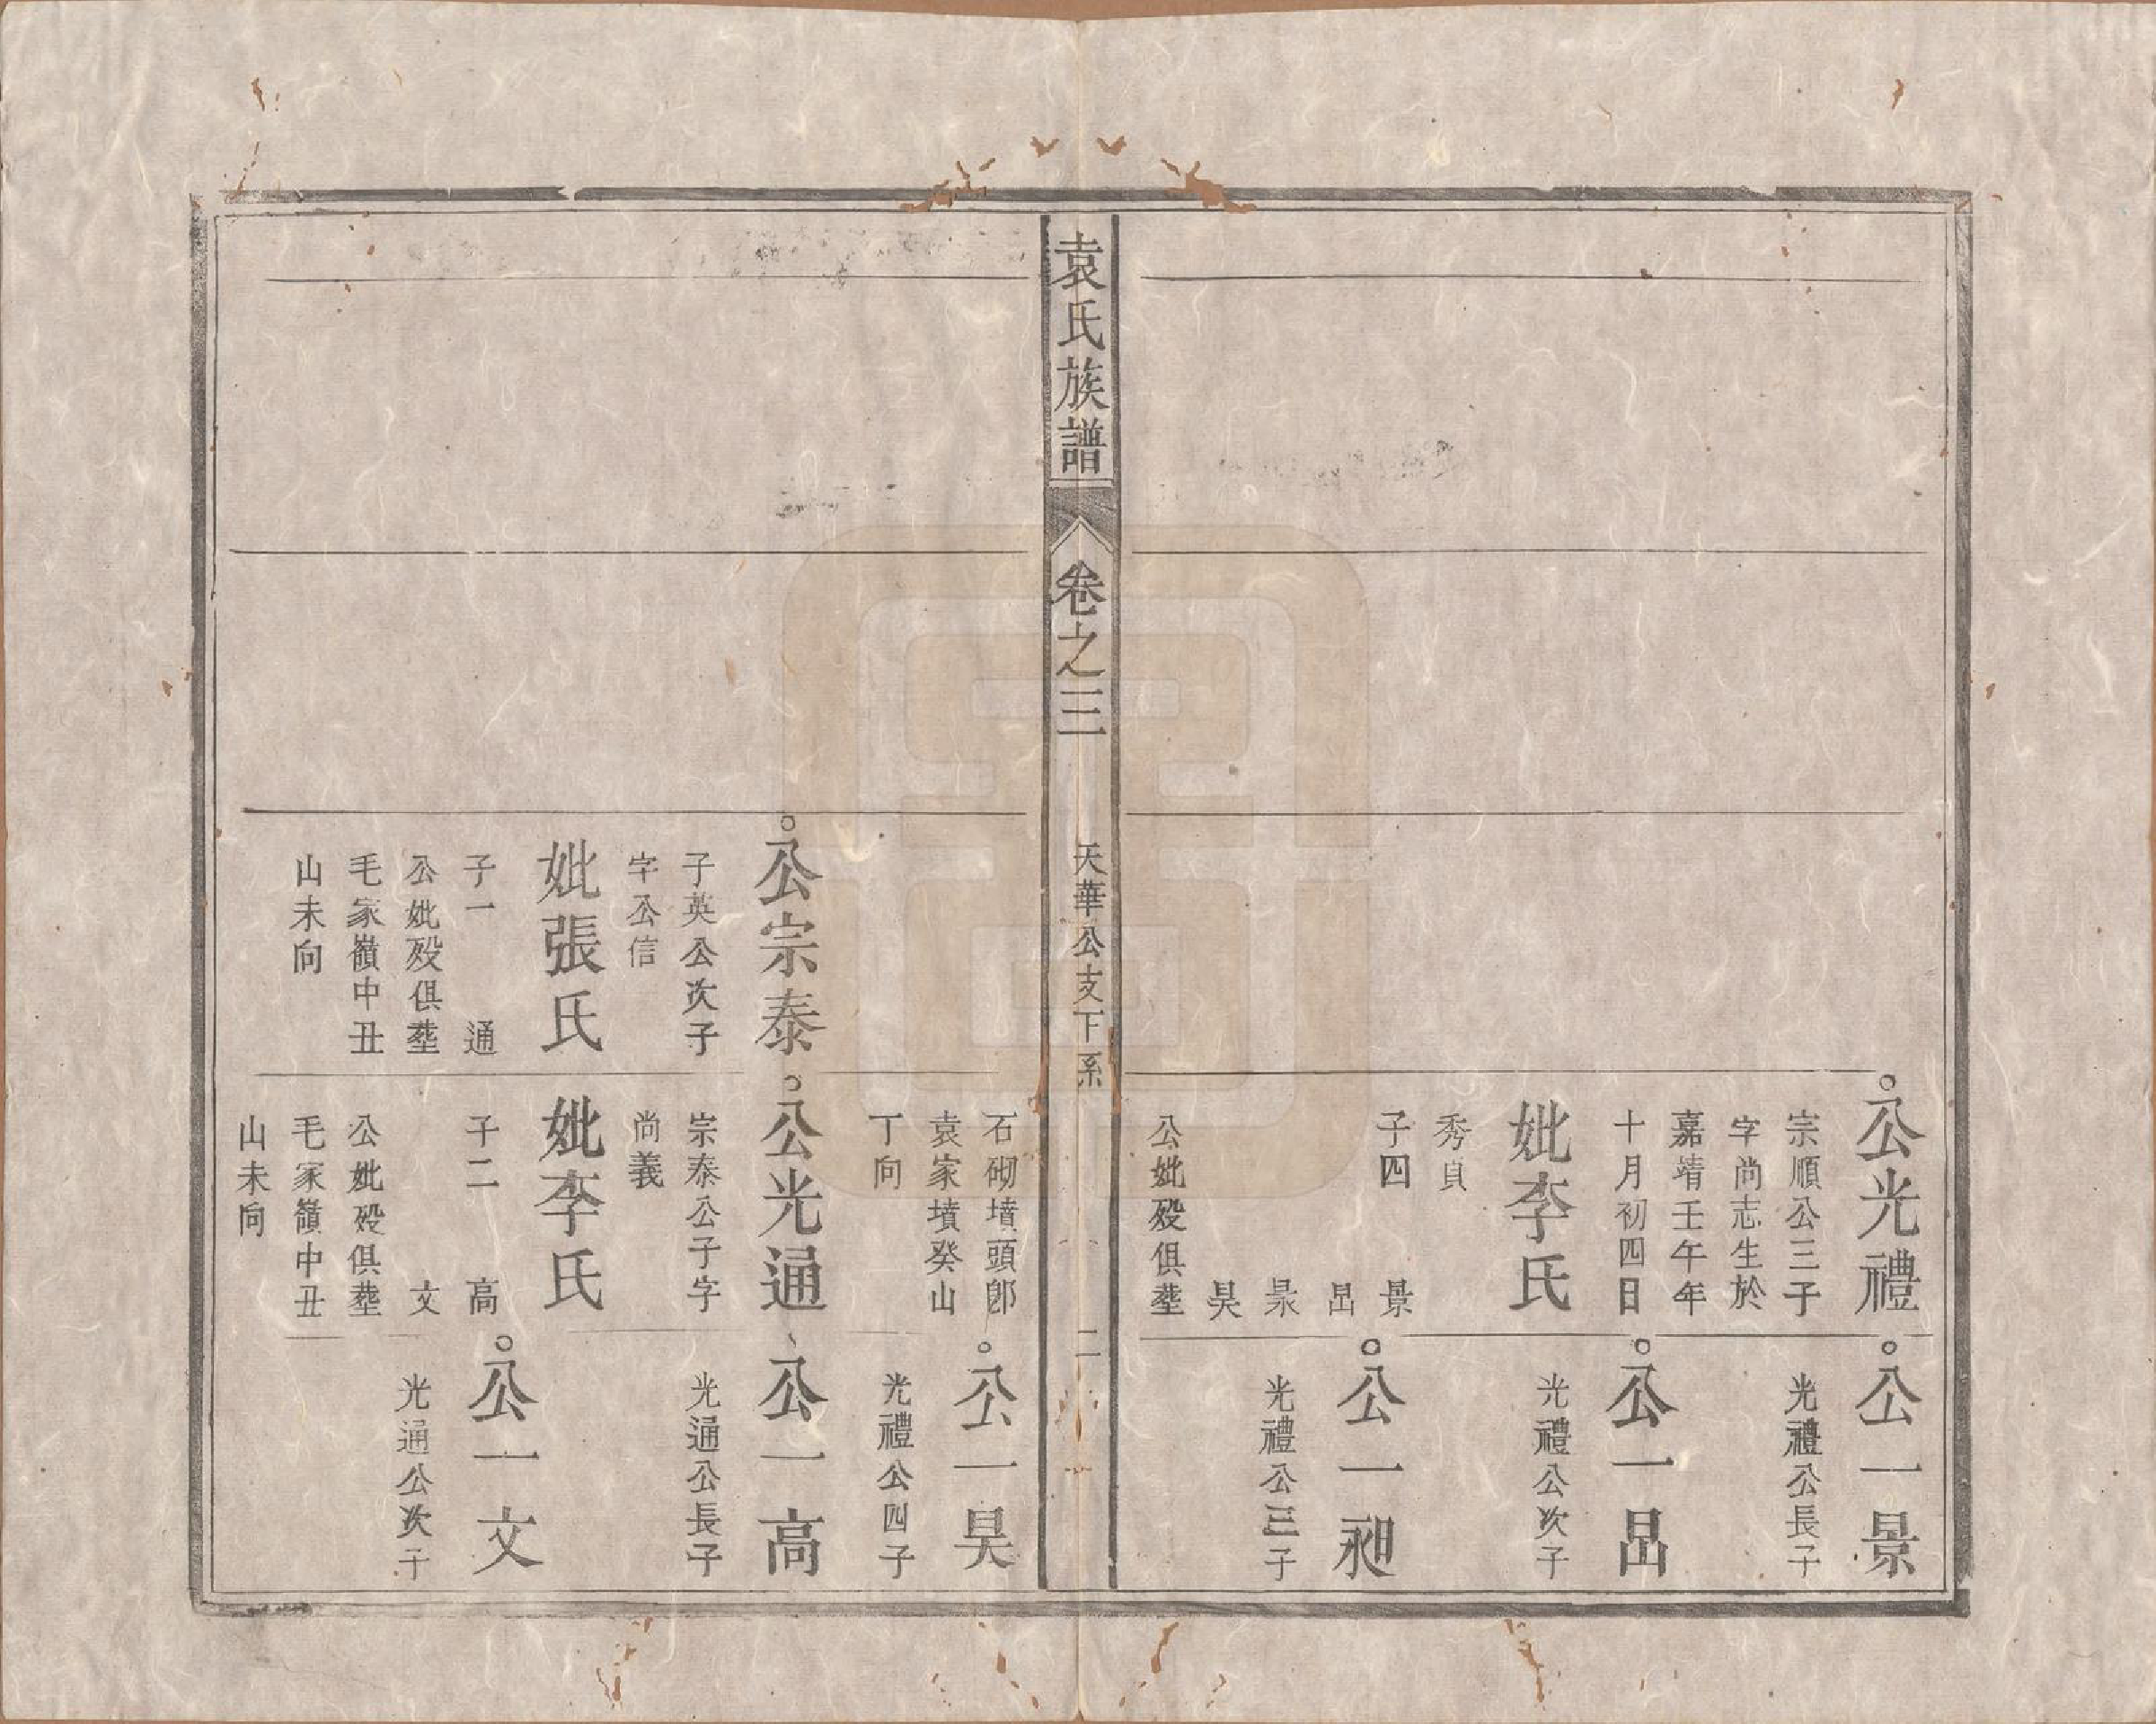 公光禮
宗順公三子
字尚志生於
嘉靖壬午年
十月初四日
妣李氏
秀貞
子四 景
昌
昊
公妣殁俱塟
公一景
光禮公長子
公一昌
光禮公次子
公一昶
光禮公三子
袁氏族譜
卷之三
天華公支下系
二
石砌墳頭卽
袁家墳癸山
丁向
公宗泰
子英公次子
字公信
妣張氏
子一 通
公妣殁俱塟
毛家嶺中丑
山未向
公光通
宗泰公子字
尚義
妣李氏
子二 高
文
公妣殁俱塟
毛家嶺中丑
山未向
公一昊
光禮公四子
公一高
光通公長子
公一文
光通公次子